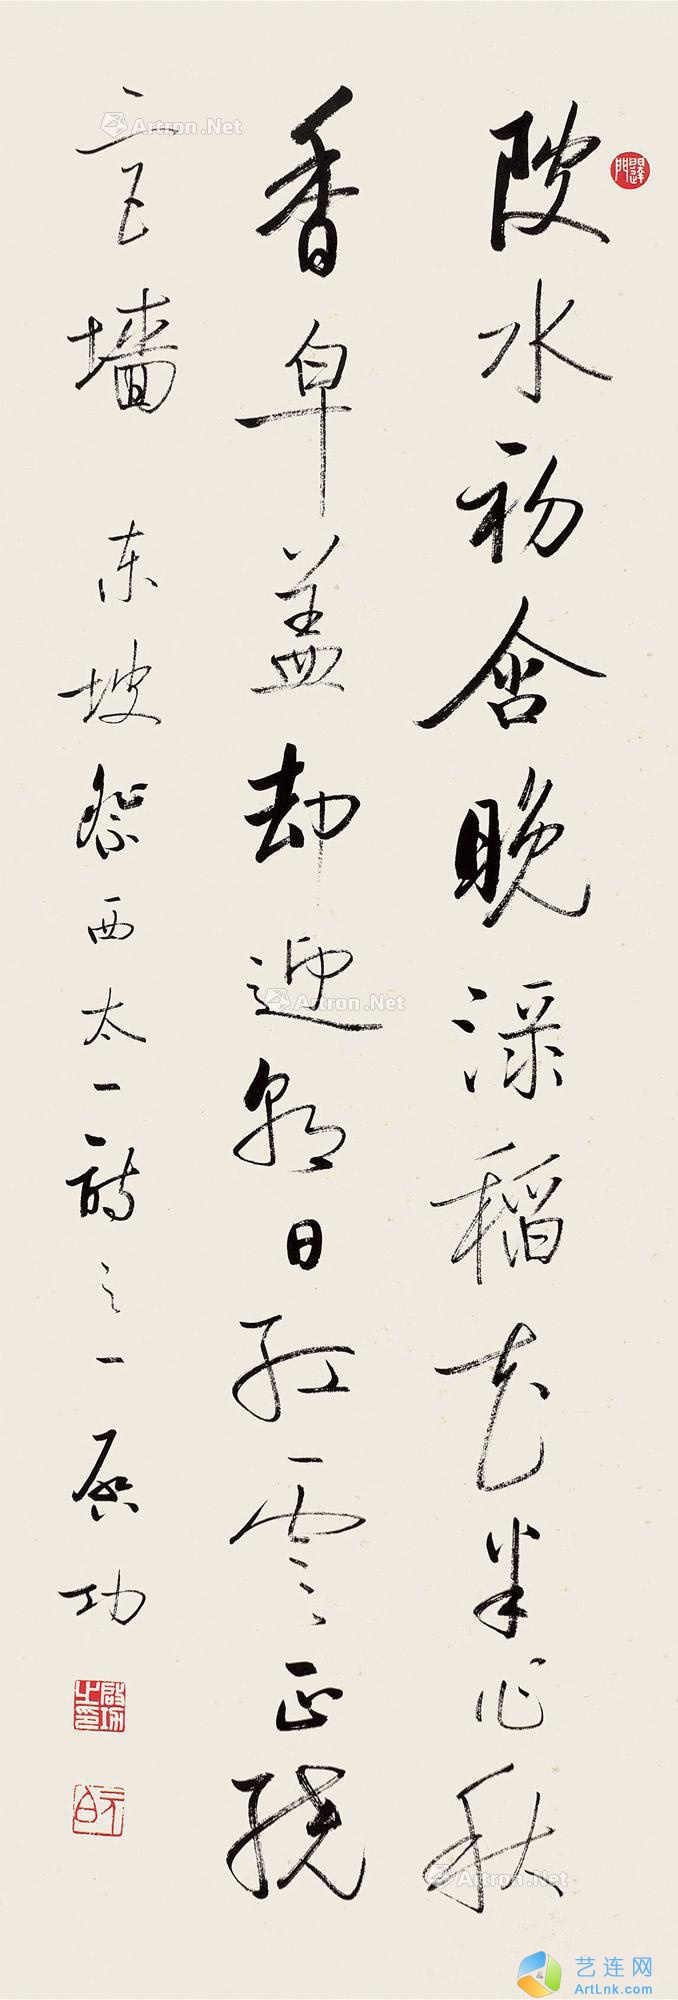 陂水初含晚渌稻花半作秋
香皂盖却迎朝日红雲正绕
宫墙 东坡祭西太一诗之一 启功
啟功之印
元白
Artron.Net
Artron.Net
Artron.Net
艺连网
ArtLnk.com